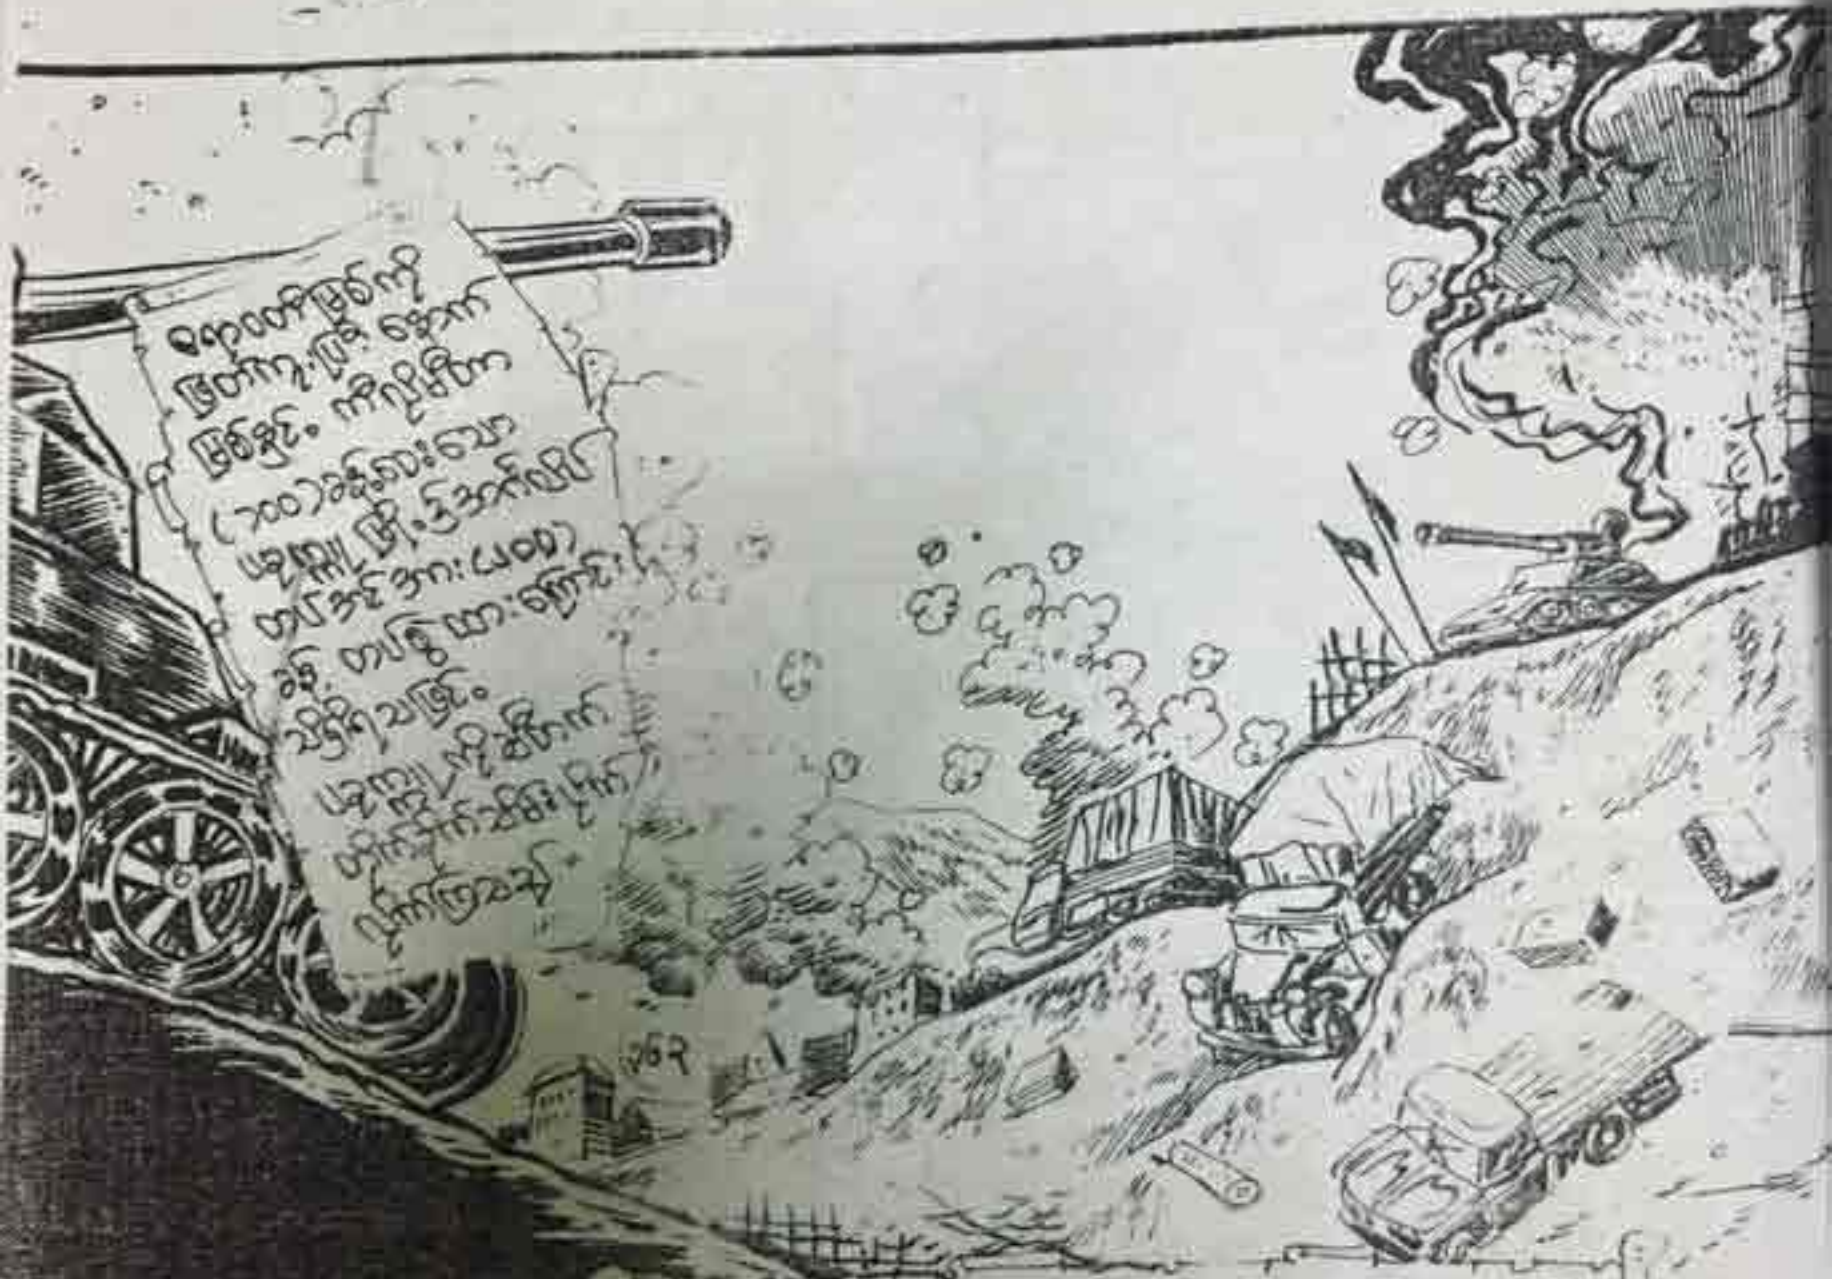 ဧရာဝတီမြစ်ကို
ဖြတ်ကူးပြီး နောက်
မြစ်နှင့် ကီလိုမီတာ
(၁၀၀)ခန့်ဝေးသော
မြို့၌
တပ်အင်အား
ခန့် တပ်စွဲထားကြောင်း
သိရှိရသဖြင့်
ကို ချီတက်
တိုက်ခိုက်သိမ်းပိုက်
လိုက်ကြသည်။